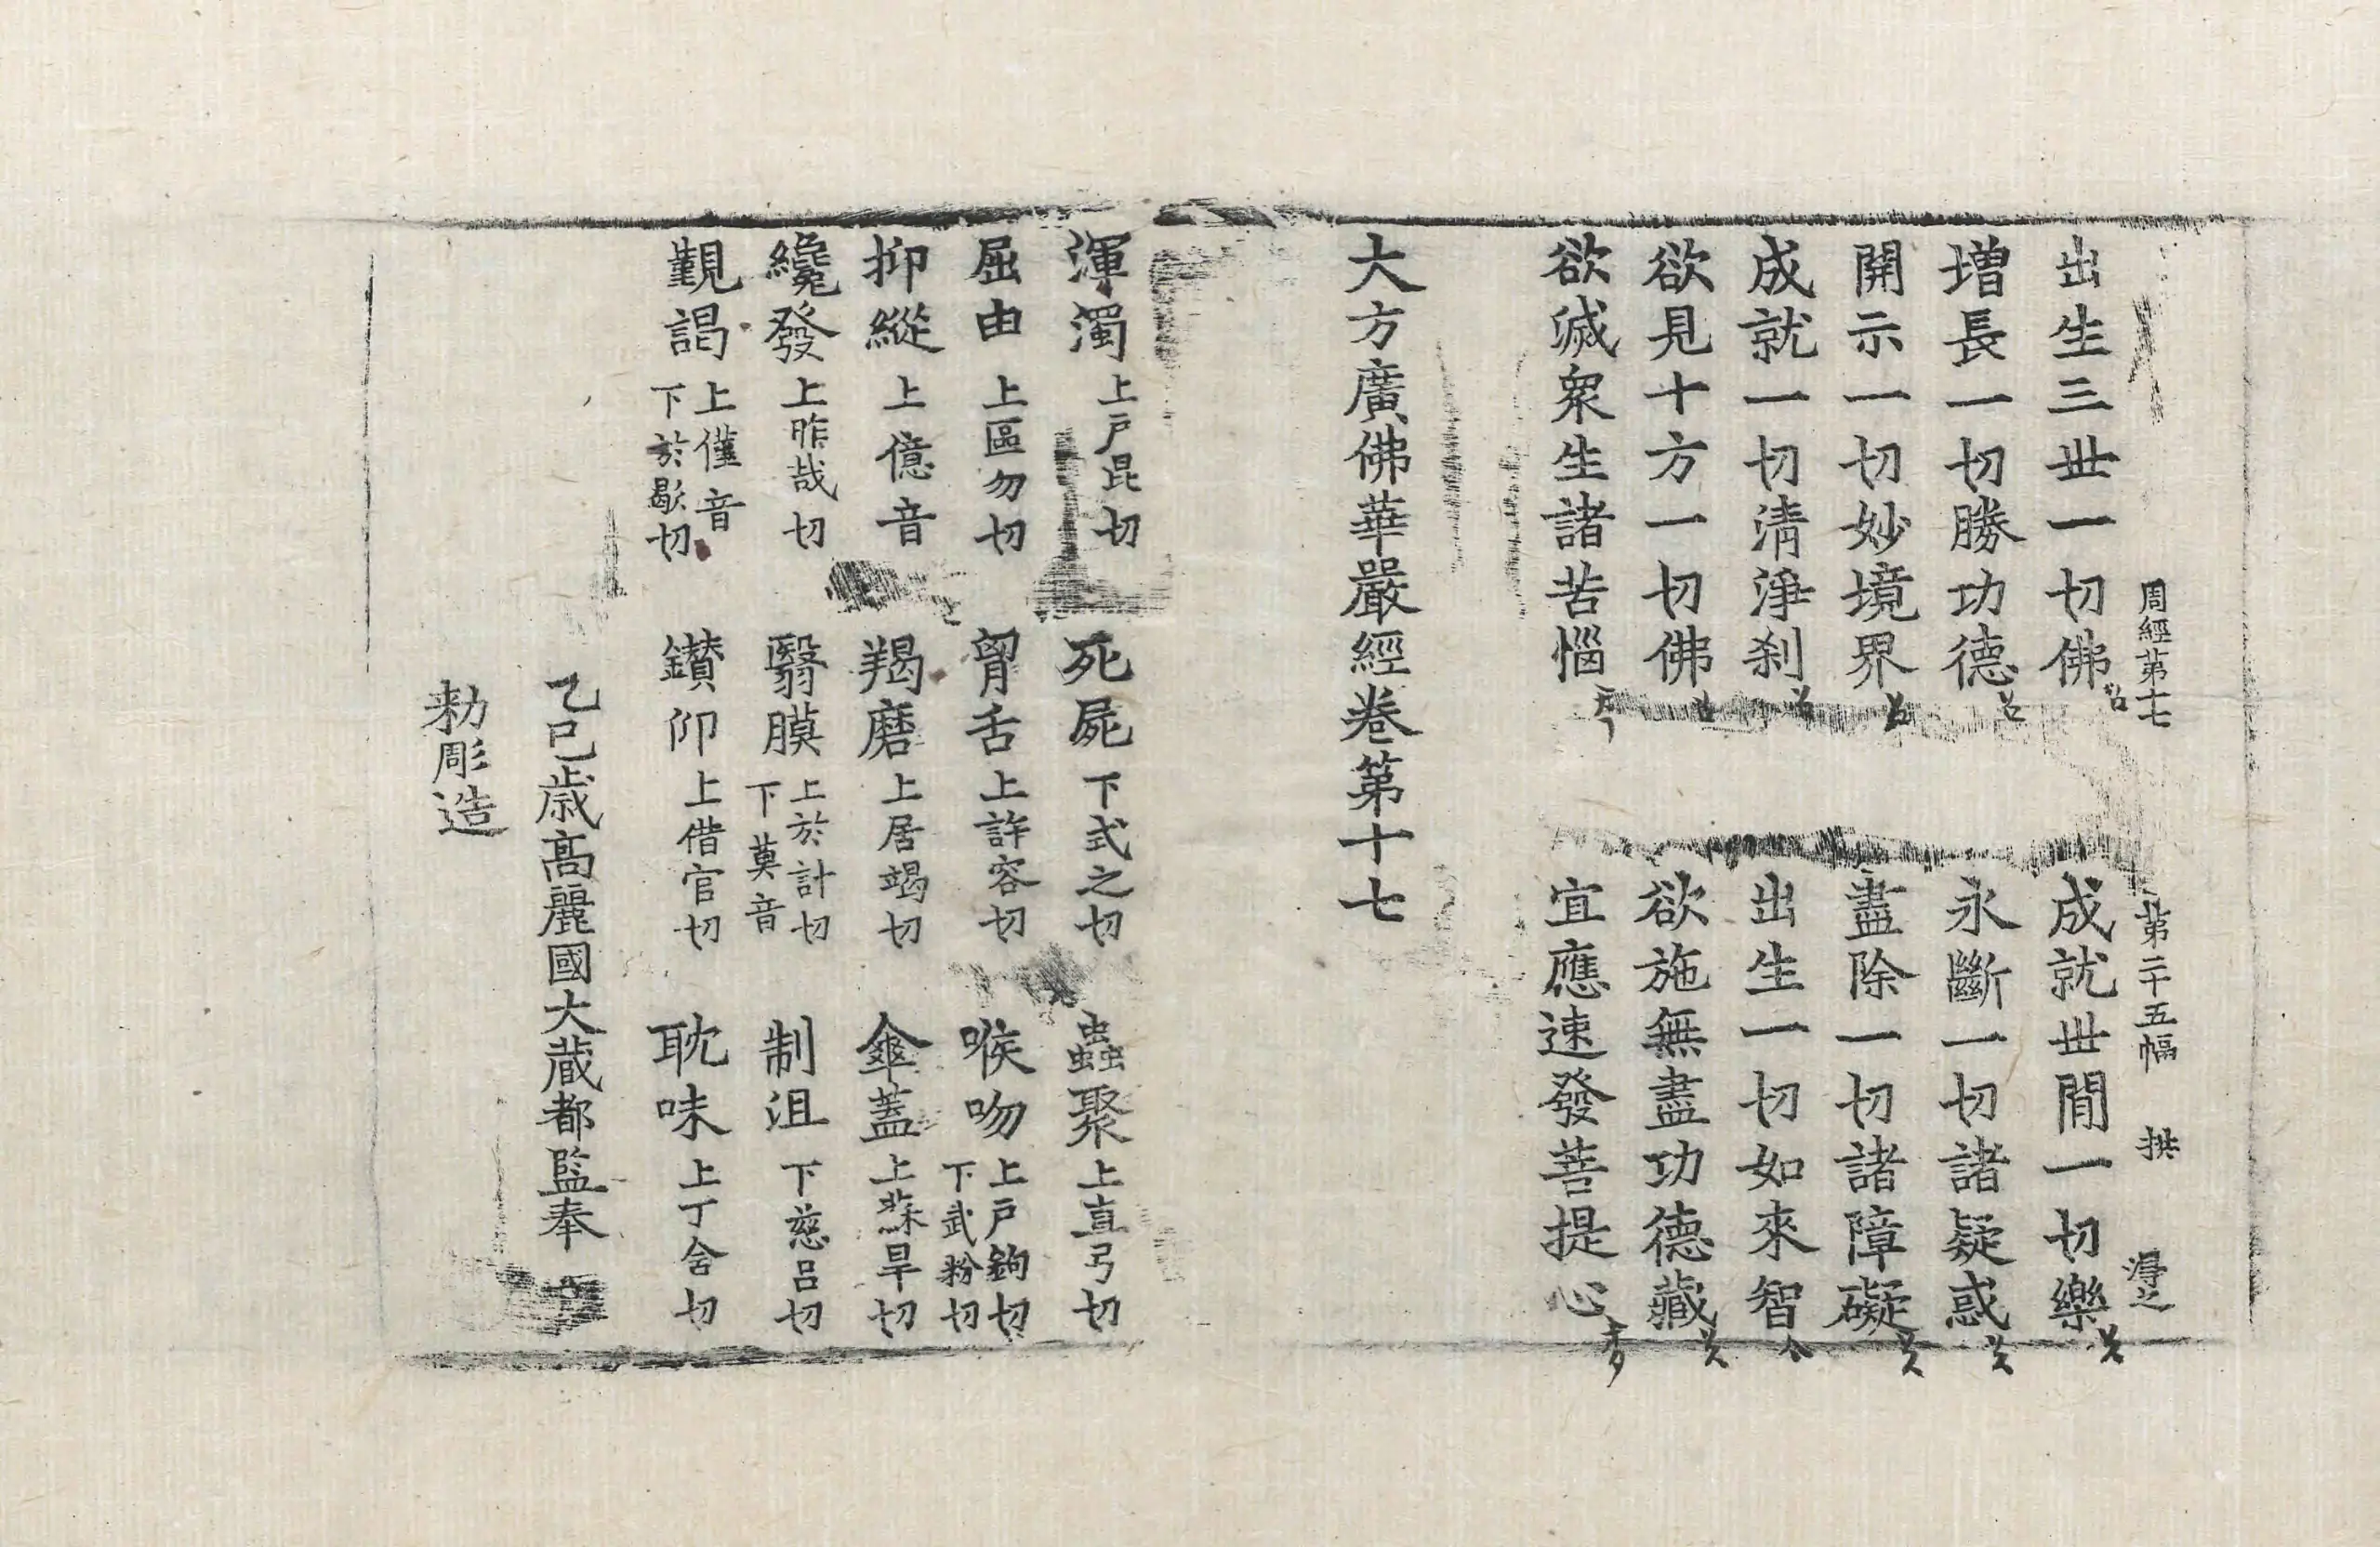 周經第十七　第二十五幅　拱　淂之
出生三世一切佛　成就世閒一切樂
增長一切勝功德　永斷一切諸疑惑
開示一切妙境界　盡除一切諸障礙
成就一切清淨刹　出生一切如來智
欲見十方一切佛　欲施無盡功德藏
欲滅衆生諸苦惱　宜應速發菩提心
大方廣佛華嚴經卷第十七
渾濁 上戶昆切　死屍 下式之切　蟲聚 上直弓切
屈由 上區勿切　胷舌 上許容切　喉吻 上戶鉤切 下武粉切
抑縱 上億音　羯磨 上居竭切　傘蓋 上蘇旱切
纔發 上昨哉切　翳膜 上於計切 下莫音　制沮 下慈呂切
覲謁 上僅音 下於歇切　鑚仰 上借官切　耽味 上丁含切
乙巳歲高麗國大藏都監奉
勑彫造